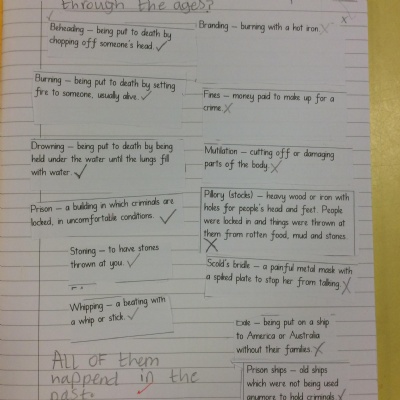 through the ages?
Beheading – being put to death by
chopping off someone's head. ✓
Burning – being put to death by setting
fire to someone, usually alive. ✓
Drowning – being put to death by being
held under the water until the lungs fill
with water. ✓
Prison – a building in which criminals are
locked, in uncomfortable conditions. ✓
Stoning – to have stones
thrown at you. ✓
Whipping – a beating with
a whip or stick. ✓
ALL OF them
happend in the
past.
Branding – burning with a hot iron. X
X
Fines – money paid to make up for a
crime. X
Mutilation – cutting off or damaging
parts of the body. X
Pillory (stocks) – heavy wood or iron with
holes for people's head and feet. People
were locked in and things were thrown at
them from rotten food, mud and stones.
X
Scold's bridle – a painful metal mask with
a spiked plate to stop her from talking. X
Exile – being put on a ship
to America or Australia
without their families. X
Prison ships – old ships
which were not being used
anymore to hold criminals. ✓